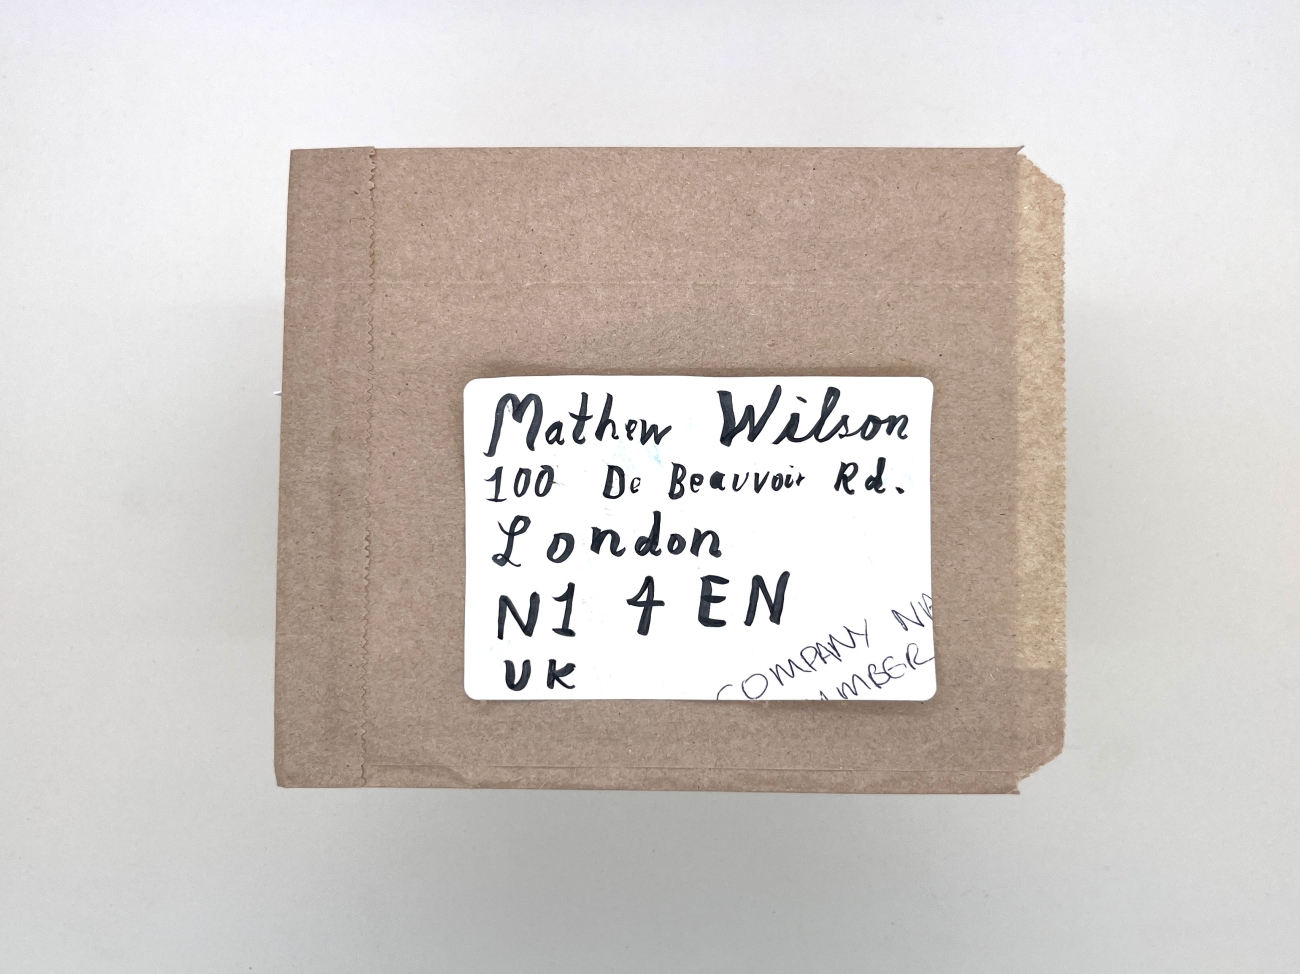 Mathew Wilson
100 De Beauvoir Rd.
London
N1 4 EN
UK
COMPANY